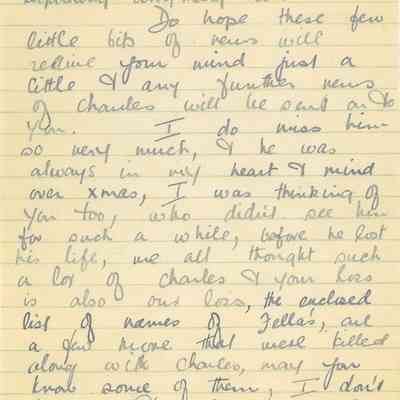 Do hope these few
little bits of news will
relieve your mind just a
little & any further news
of Charles will be sent on to
you. I do miss him
so very much, & he was
always in my heart & mind
over Xmas, I was thinking of
you too, who didn't see him
for such a while, before he lost
his life, we all thought such
a lot of Charles & your loss
is also our loss, the enclosed
list of names of Fella's, are
a few more that were killed
along with Charles, may you
know some of them, I don't